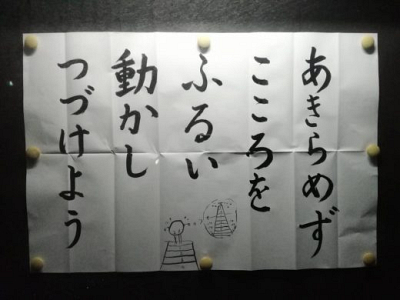 あきらめず
こころを
ふるい
動かし
つづけよう